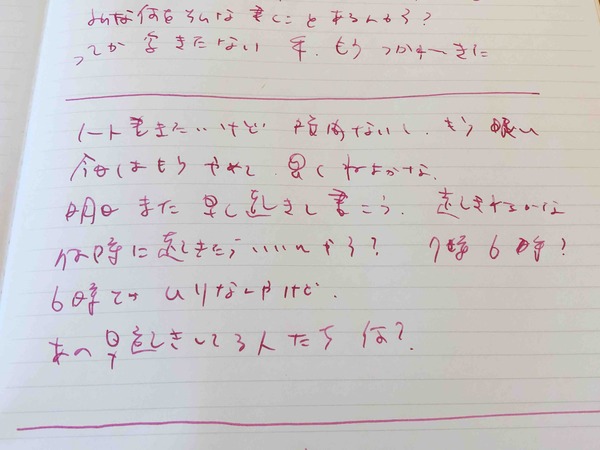 みんな何をそんな書くことあるんだろ?
ってか字きたない 手、もうつかれてきた
ノート書きたいけど 時間ないし、もう眠い
今日はもうやめて、早くねよかな。
明日また早く起きして書こう。起きれるかな
何時に起きたらいいんだろ? 7時 6時?
6時では ムリな
あの早起きしてる人たち 何?